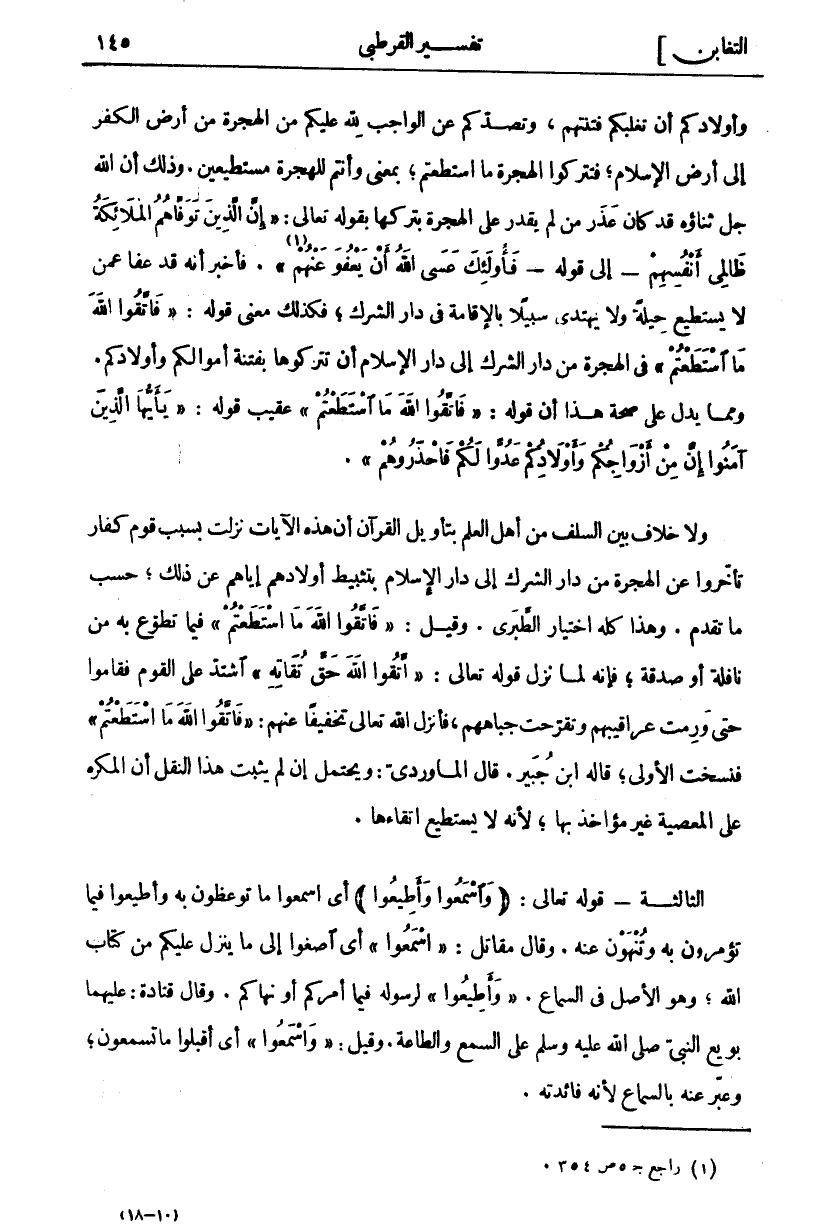 التغابن ] تفسير القرطبى ١٤٥
وأولادكم أن تغلبكم فتنتهم ، وتصدّكم عن الواجب لله عليكم من الهجرة من أرض الكفر
إلى أرض الإسلام؛ فتتركوا الهجرة ما استطعتم؛ بمعنى وأنتم للهجرة مستطيعين . وذلك أن الله
جل ثناؤه قد كان عَذَر من لم يقدر على الهجرة بتركها بقوله تعالى : « إِنَّ الَّذِينَ تَوَفَّاهُمُ الْمَلَائِكَةُ
ظَالِمِى أَنْفُسِهِمْ — إلى قوله — فَأُولَئِكَ عَسَى اللهُ أَنْ يَعْفُوَ عَنْهُمْ (١) » . فأخبر أنه قد عفا عمن
لا يستطيع حِيلةً ولا يهتدى سبيلًا بالإقامة فى دار الشرك ؛ فكذلك معنى قوله : « فَاتَّقُوا اللهَ
مَا ٱسْتَطَعْتُمْ » فى الهجرة من دار الشرك إلى دار الإسلام أن تتركوها بفتنة أموالكم وأولادكم .
ومما يدل على صحة هذا أن قوله : « فَاتَّقُوا اللهَ مَا ٱسْتَطَعْتُمْ » عقيب قوله : « يَأَيُّهَا الَّذِينَ
آمَنُوا إِنَّ مِنْ أَزْوَاجِكُمْ وَأَوْلَادِكُمْ عَدُوًّا لَكُمْ فَاحْذَرُوهُمْ » .
ولا خلاف بين السلف من أهل العلم بتأويل القرآن أن هذه الآيات نزلت بسبب قوم كفار
تأخّروا عن الهجرة من دار الشرك إلى دار الإسلام بتثبيط أولادهم إياهم عن ذلك ؛ حسب
ما تقدم . وهذا كله اختيار الطَّبَرى . وقيل : « فَاتَّقُوا اللهَ مَا اسْتَطَعْتُمْ » فيما تطوّع به من
نافلة أو صدقة ؛ فإنه لما نزل قوله تعالى : « اتَّقُوا اللهَ حَقَّ تُقَاتِهِ » ٱشتدّ على القوم فقاموا
حتى وَرِمت عراقيبهم وتقرّحت جباههم ، فأنزل الله تعالى تخفيفًا عنهم : « فَاتَّقُوا اللهَ مَا اسْتَطَعْتُمْ »
فنسخت الأولى ؛ قاله ابن جُبَير . قال الماوردىّ : ويحتمل إن لم يثبت هذا النقل أن المكره
على المعصية غير مؤاخذ بها ؛ لأنه لا يستطيع اتقاءها .
الثالثة — قوله تعالى : ﴿ وَٱسْمَعُوا وَأَطِيعُوا ﴾ أى اسمعوا ما توعظون به وأطيعوا فيما
تؤمرون به وتُنْهَوْن عنه . وقال مقاتل : « اسْمَعُوا » أى ٱصغوا إلى ما ينزل عليكم من كتاب
الله ؛ وهو الأصل فى السماع . « وَأَطِيعُوا » لرسوله فيما أمركم أو نهاكم . وقال قتادة : عليهما
بويع النبىّ صلى الله عليه وسلم على السمع والطاعة . وقيل : « وَاسْمَعُوا » أى أقبلوا ما تسمعون ؛
وعبّر عنه بالسماع لأنه فائدته .
(١) راجع جـ ٥ ص ٣٥٤ .
(١٠–١٨)